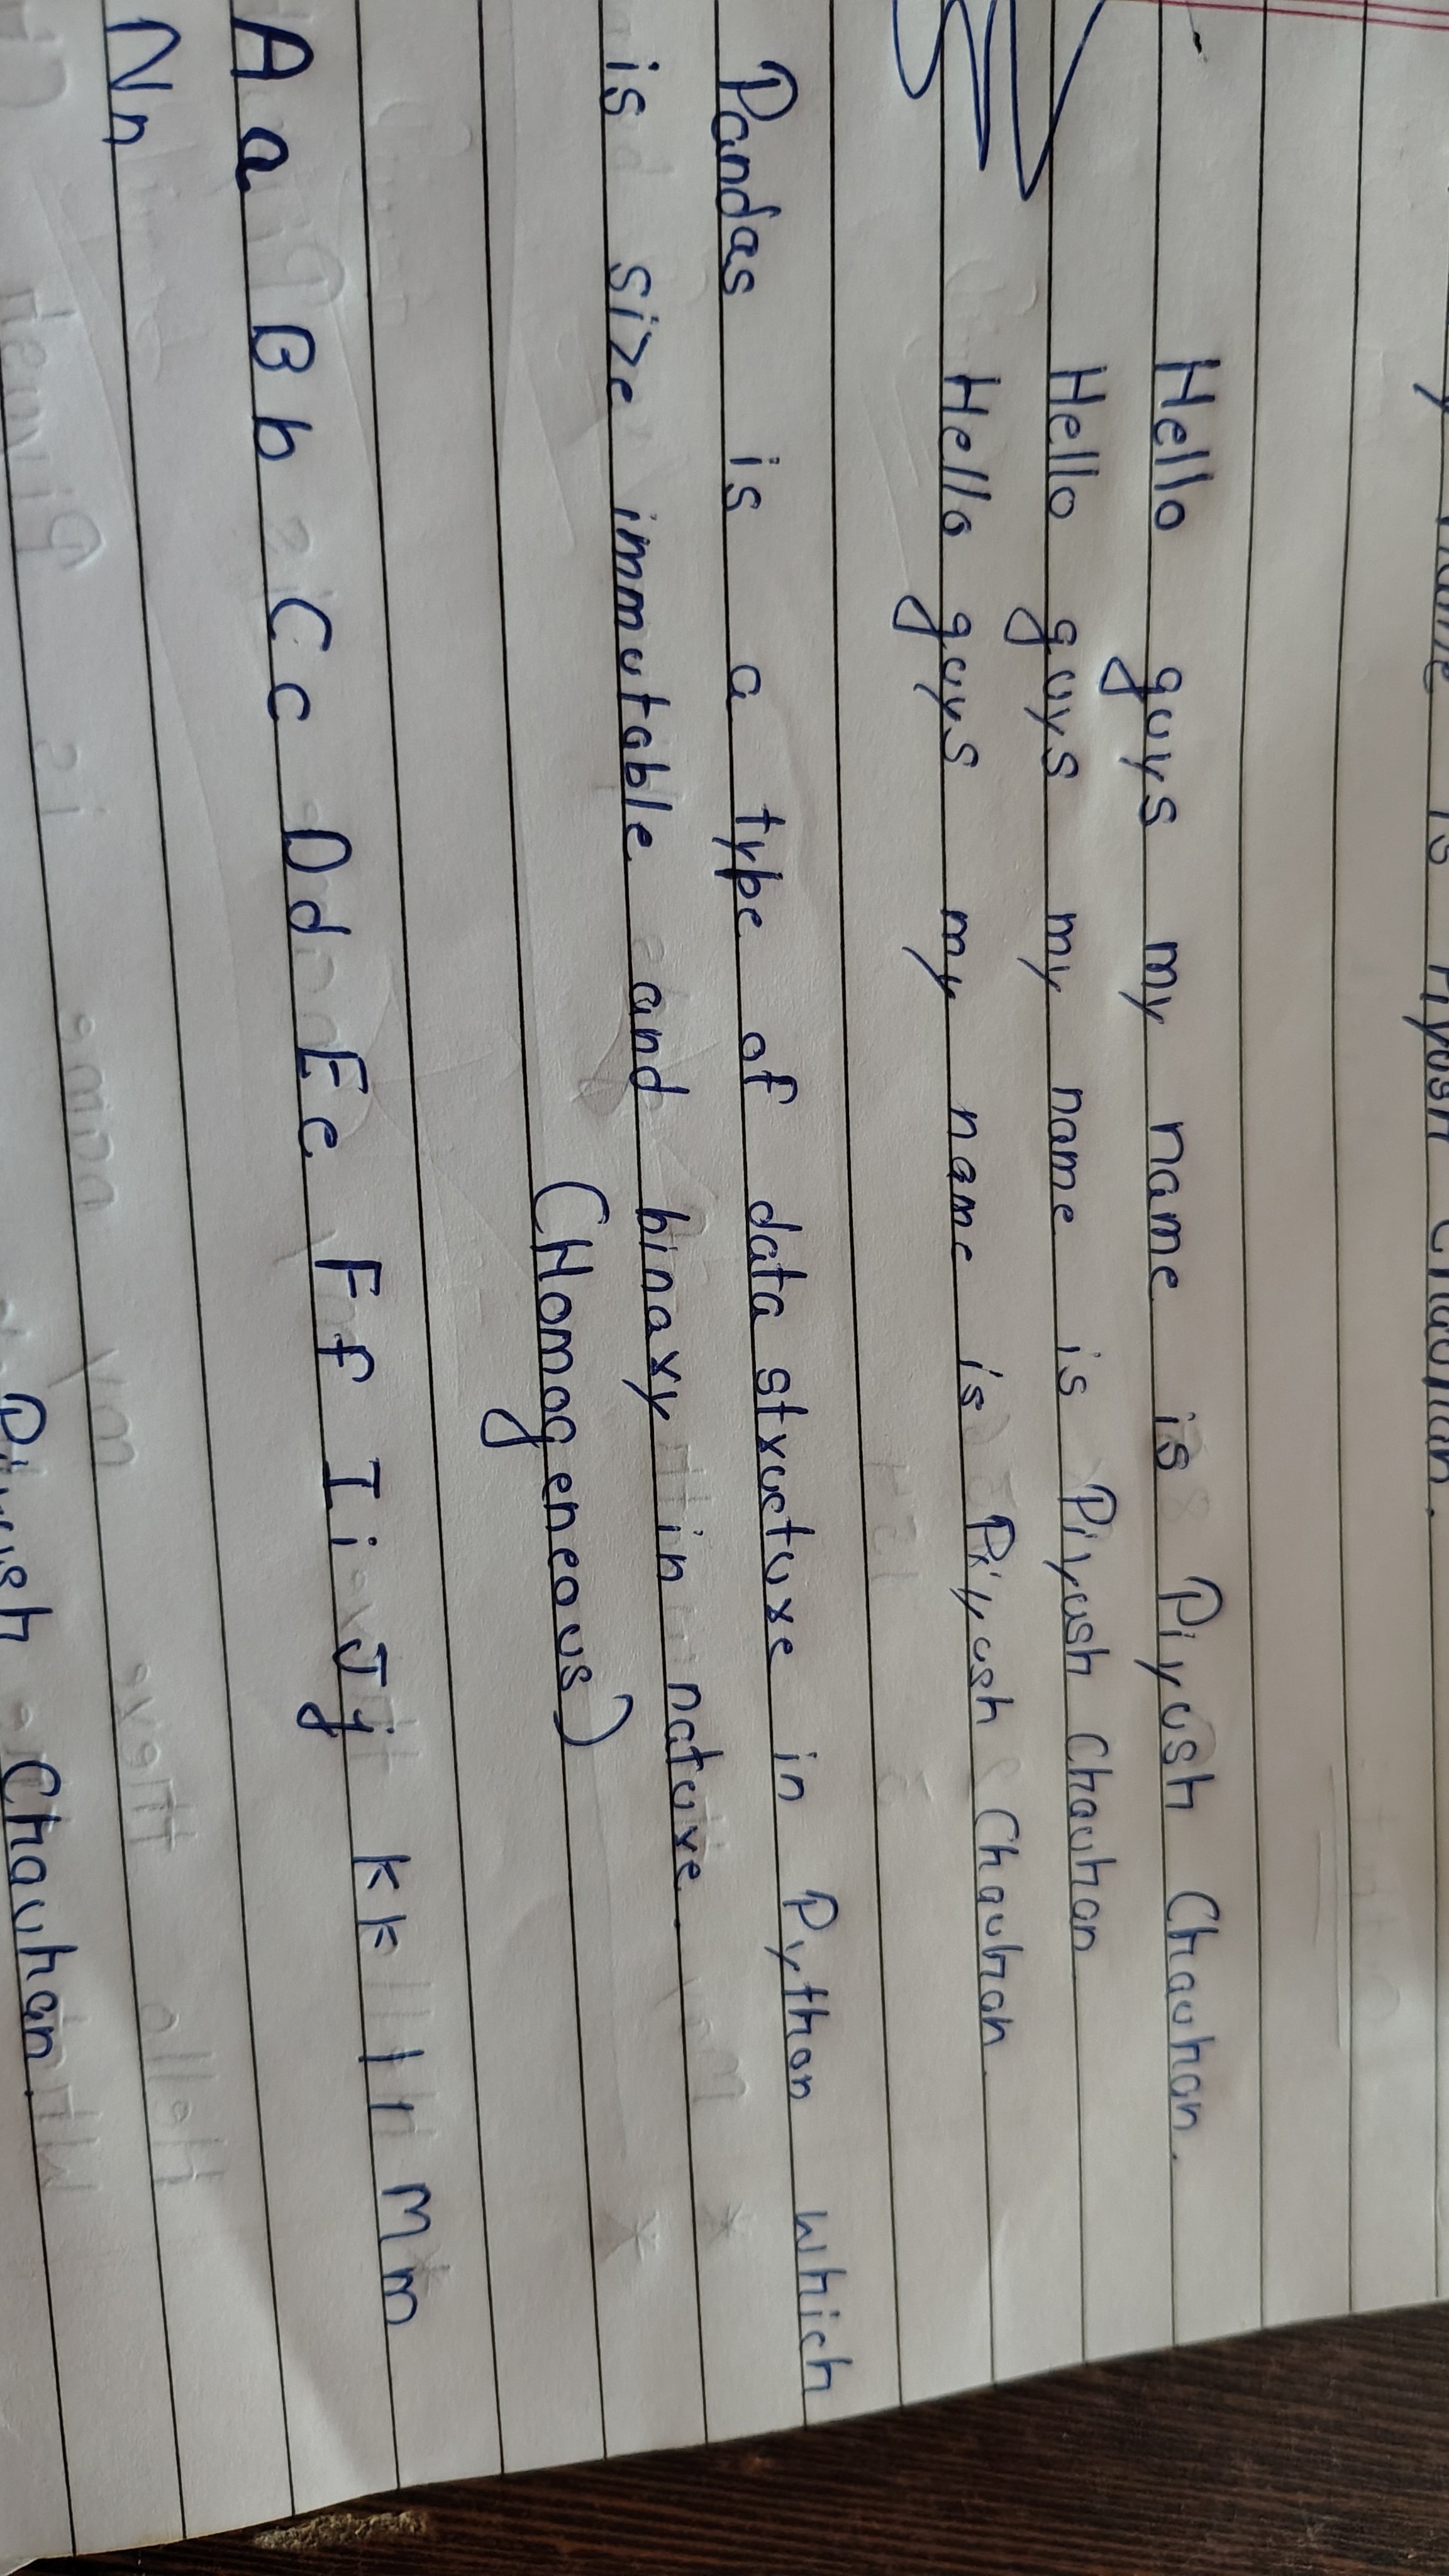 name is Piyush Chauhan.
Hello guys my name is Piyush Chauhan.
Hello guys my name is Piyush Chauhan
Hello guys my name is Piyush Chauhan
Pandas is a type of data structure in Python which
is size immutable and binary in nature.
(Homogeneous)
A a B b C c D d E e F f I i J j K k l l M m
N n
Piyush Chauhan.